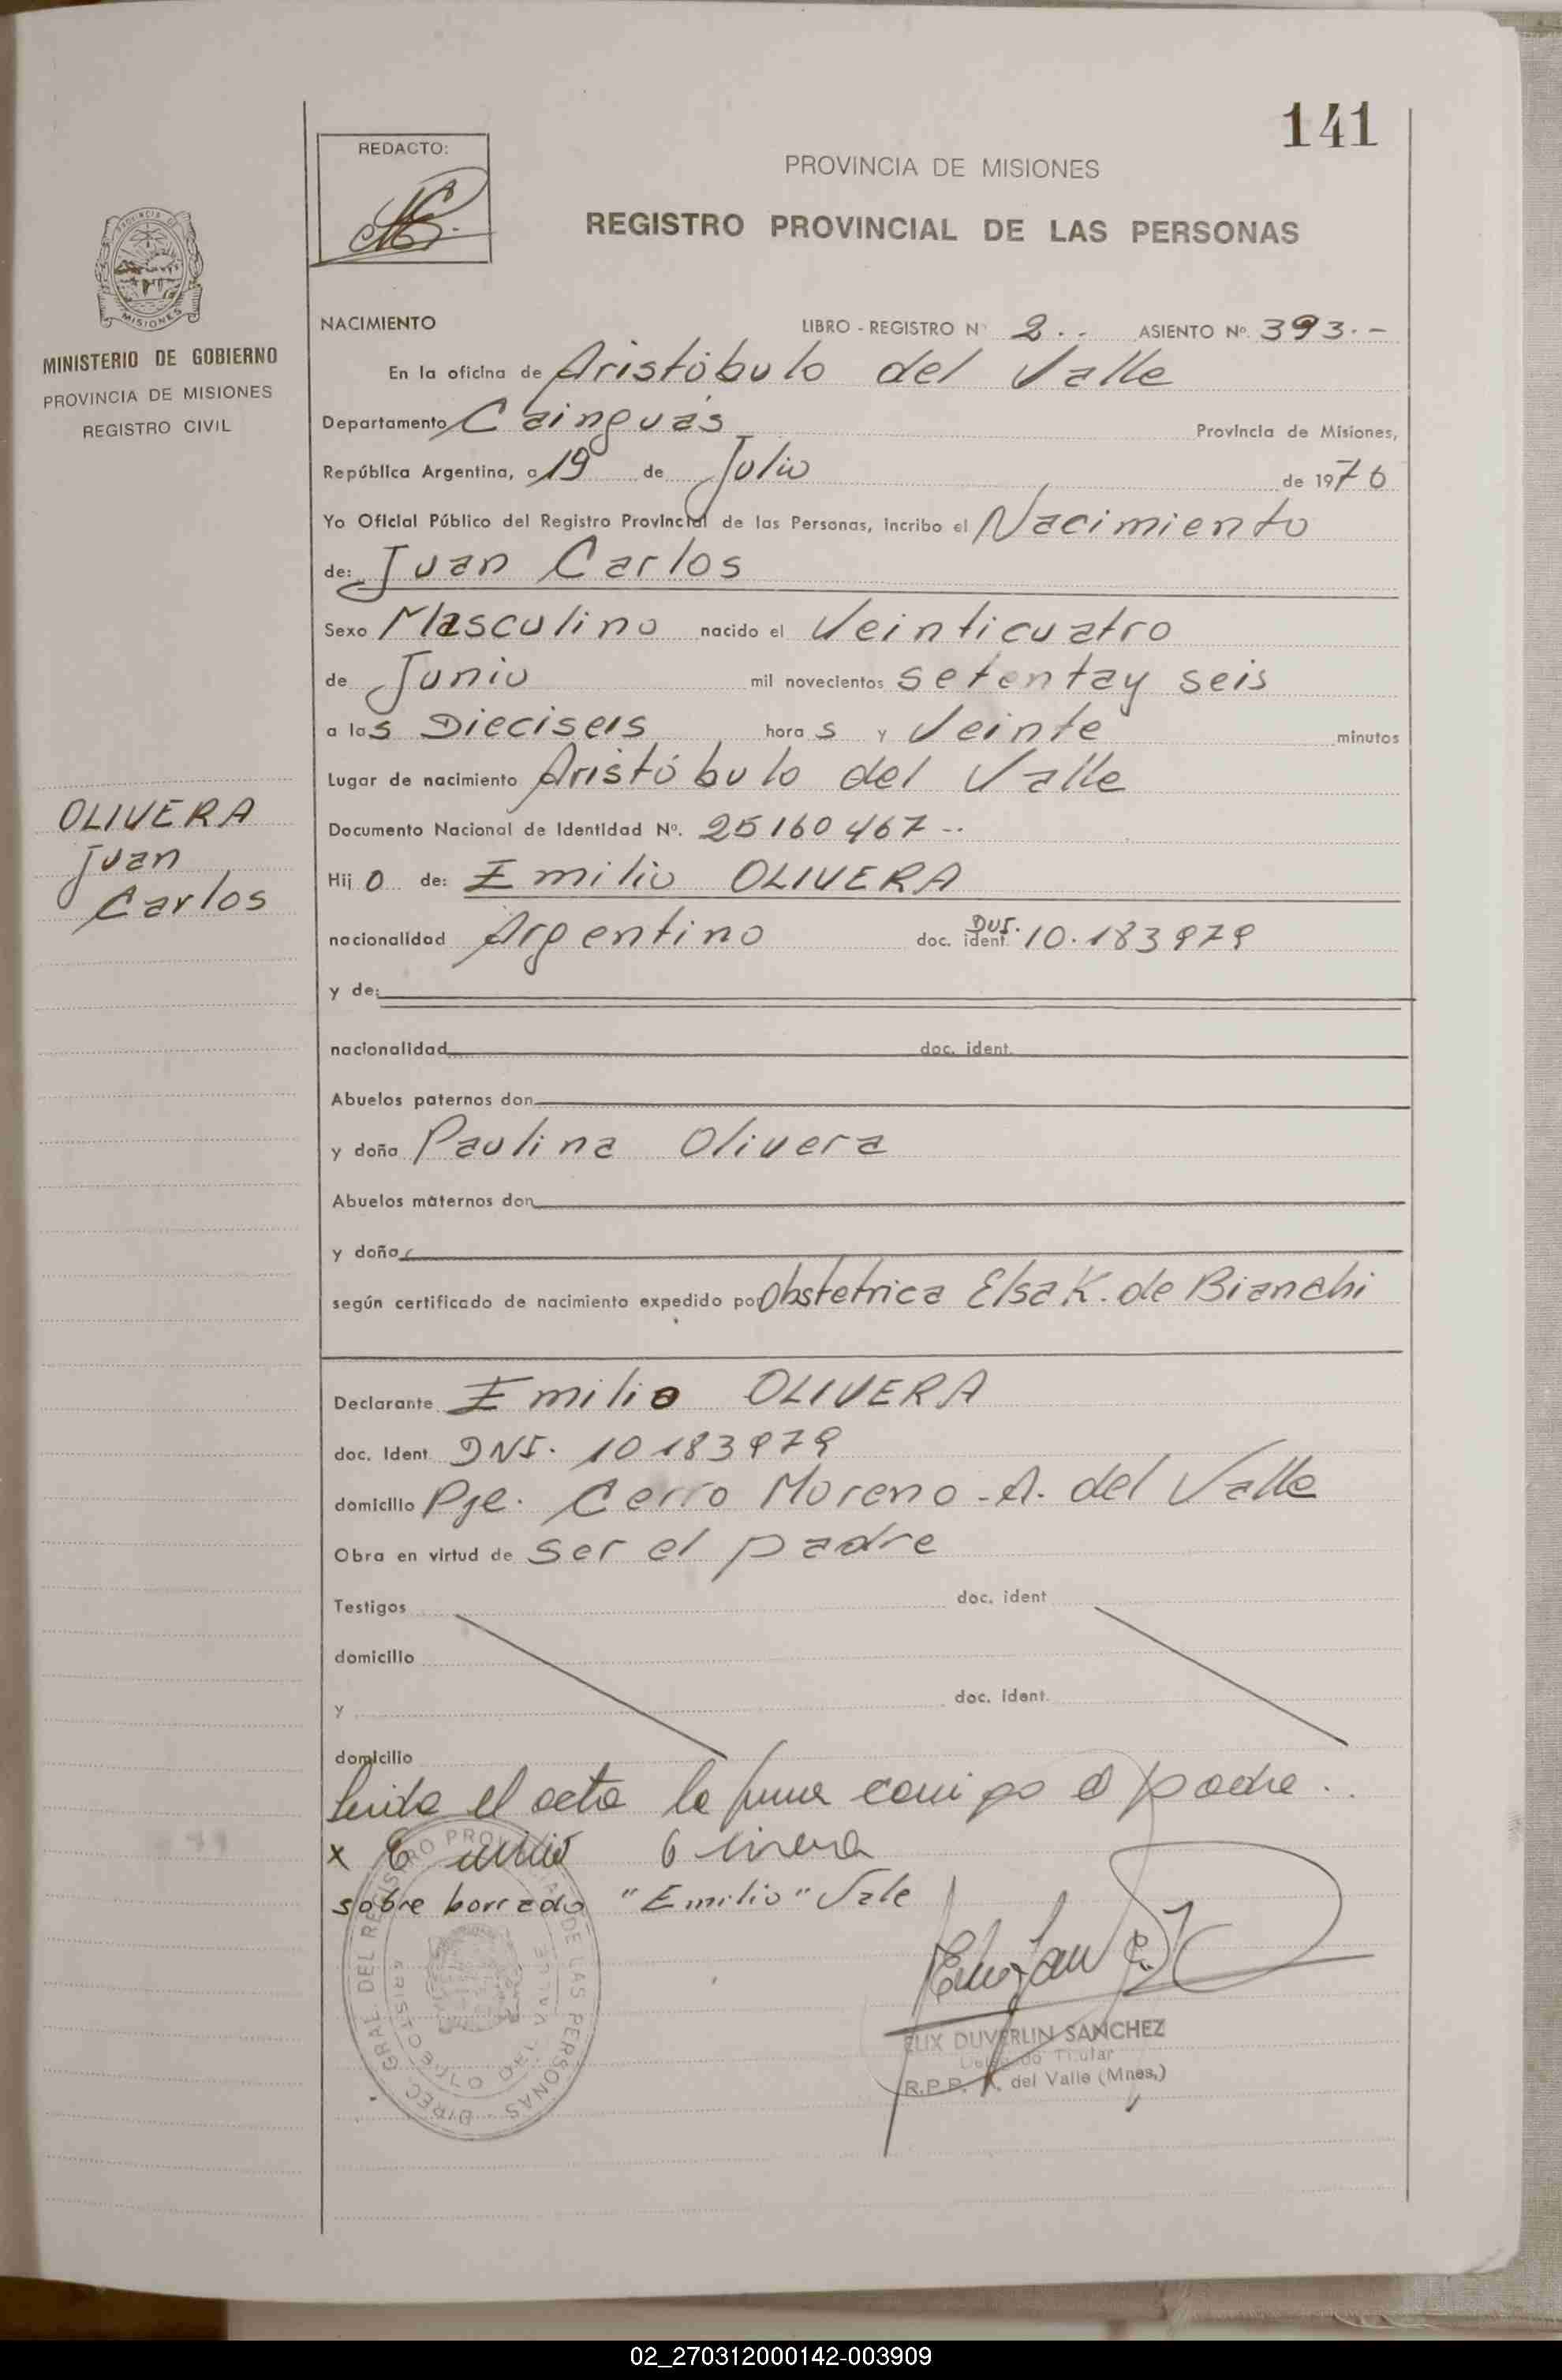 141
REDACTO:
PROVINCIA DE MISIONES
REGISTRO PROVINCIAL DE LAS PERSONAS
MISIONES
MINISTERIO DE GOBIERNO
PROVINCIA DE MISIONES
REGISTRO CIVIL
NACIMIENTO LIBRO - REGISTRO Nº 2.. ASIENTO Nº. 393.-
En la oficina de Aristóbulo del Valle
Departamento Cainguás Provincia de Misiones,
República Argentina, a 19 de Julio de 1976
Yo Oficial Público del Registro Provincial de las Personas, incribo el Nacimiento
de: Juan Carlos
Sexo Masculino nacido el Veinticuatro
de Junio mil novecientos setentay seis
a las Dieciseis horas y Veinte minutos
Lugar de nacimiento Aristóbulo del Valle
OLIVERA
Juan
Carlos
Documento Nacional de Identidad Nº. 25160467--
Hijo de: Emilio OLIVERA
nacionalidad Argentino doc. ident. DNI. 10.183979
y de:
nacionalidad doc. ident.
Abuelos paternos don
y doña Paulina Olivera
Abuelos maternos don
y doña
según certificado de nacimiento expedido por Obstetrica Elsa K. de Bianchi
Declarante Emilio OLIVERA
doc. Ident. DNI. 10183979
domicilio Pje. Cerro Moreno - A. del Valle
Obra en virtud de ser el padre
Testigos doc. ident
domicilio
y doc. ident.
domicilio
Leida el acta la firma conmigo el padre.
x Emilio Olivera
sobre borrado "Emilio" Vale
DIREC. GRAL DEL REGISTRO PROVINCIAL DE LAS PERSONAS
ARISTOBULO DEL VALLE
ELIX DUVERLIN SANCHEZ
Delegado Titular
R.P.P. A. del Valle (Mnes,)
02_270312000142-003909